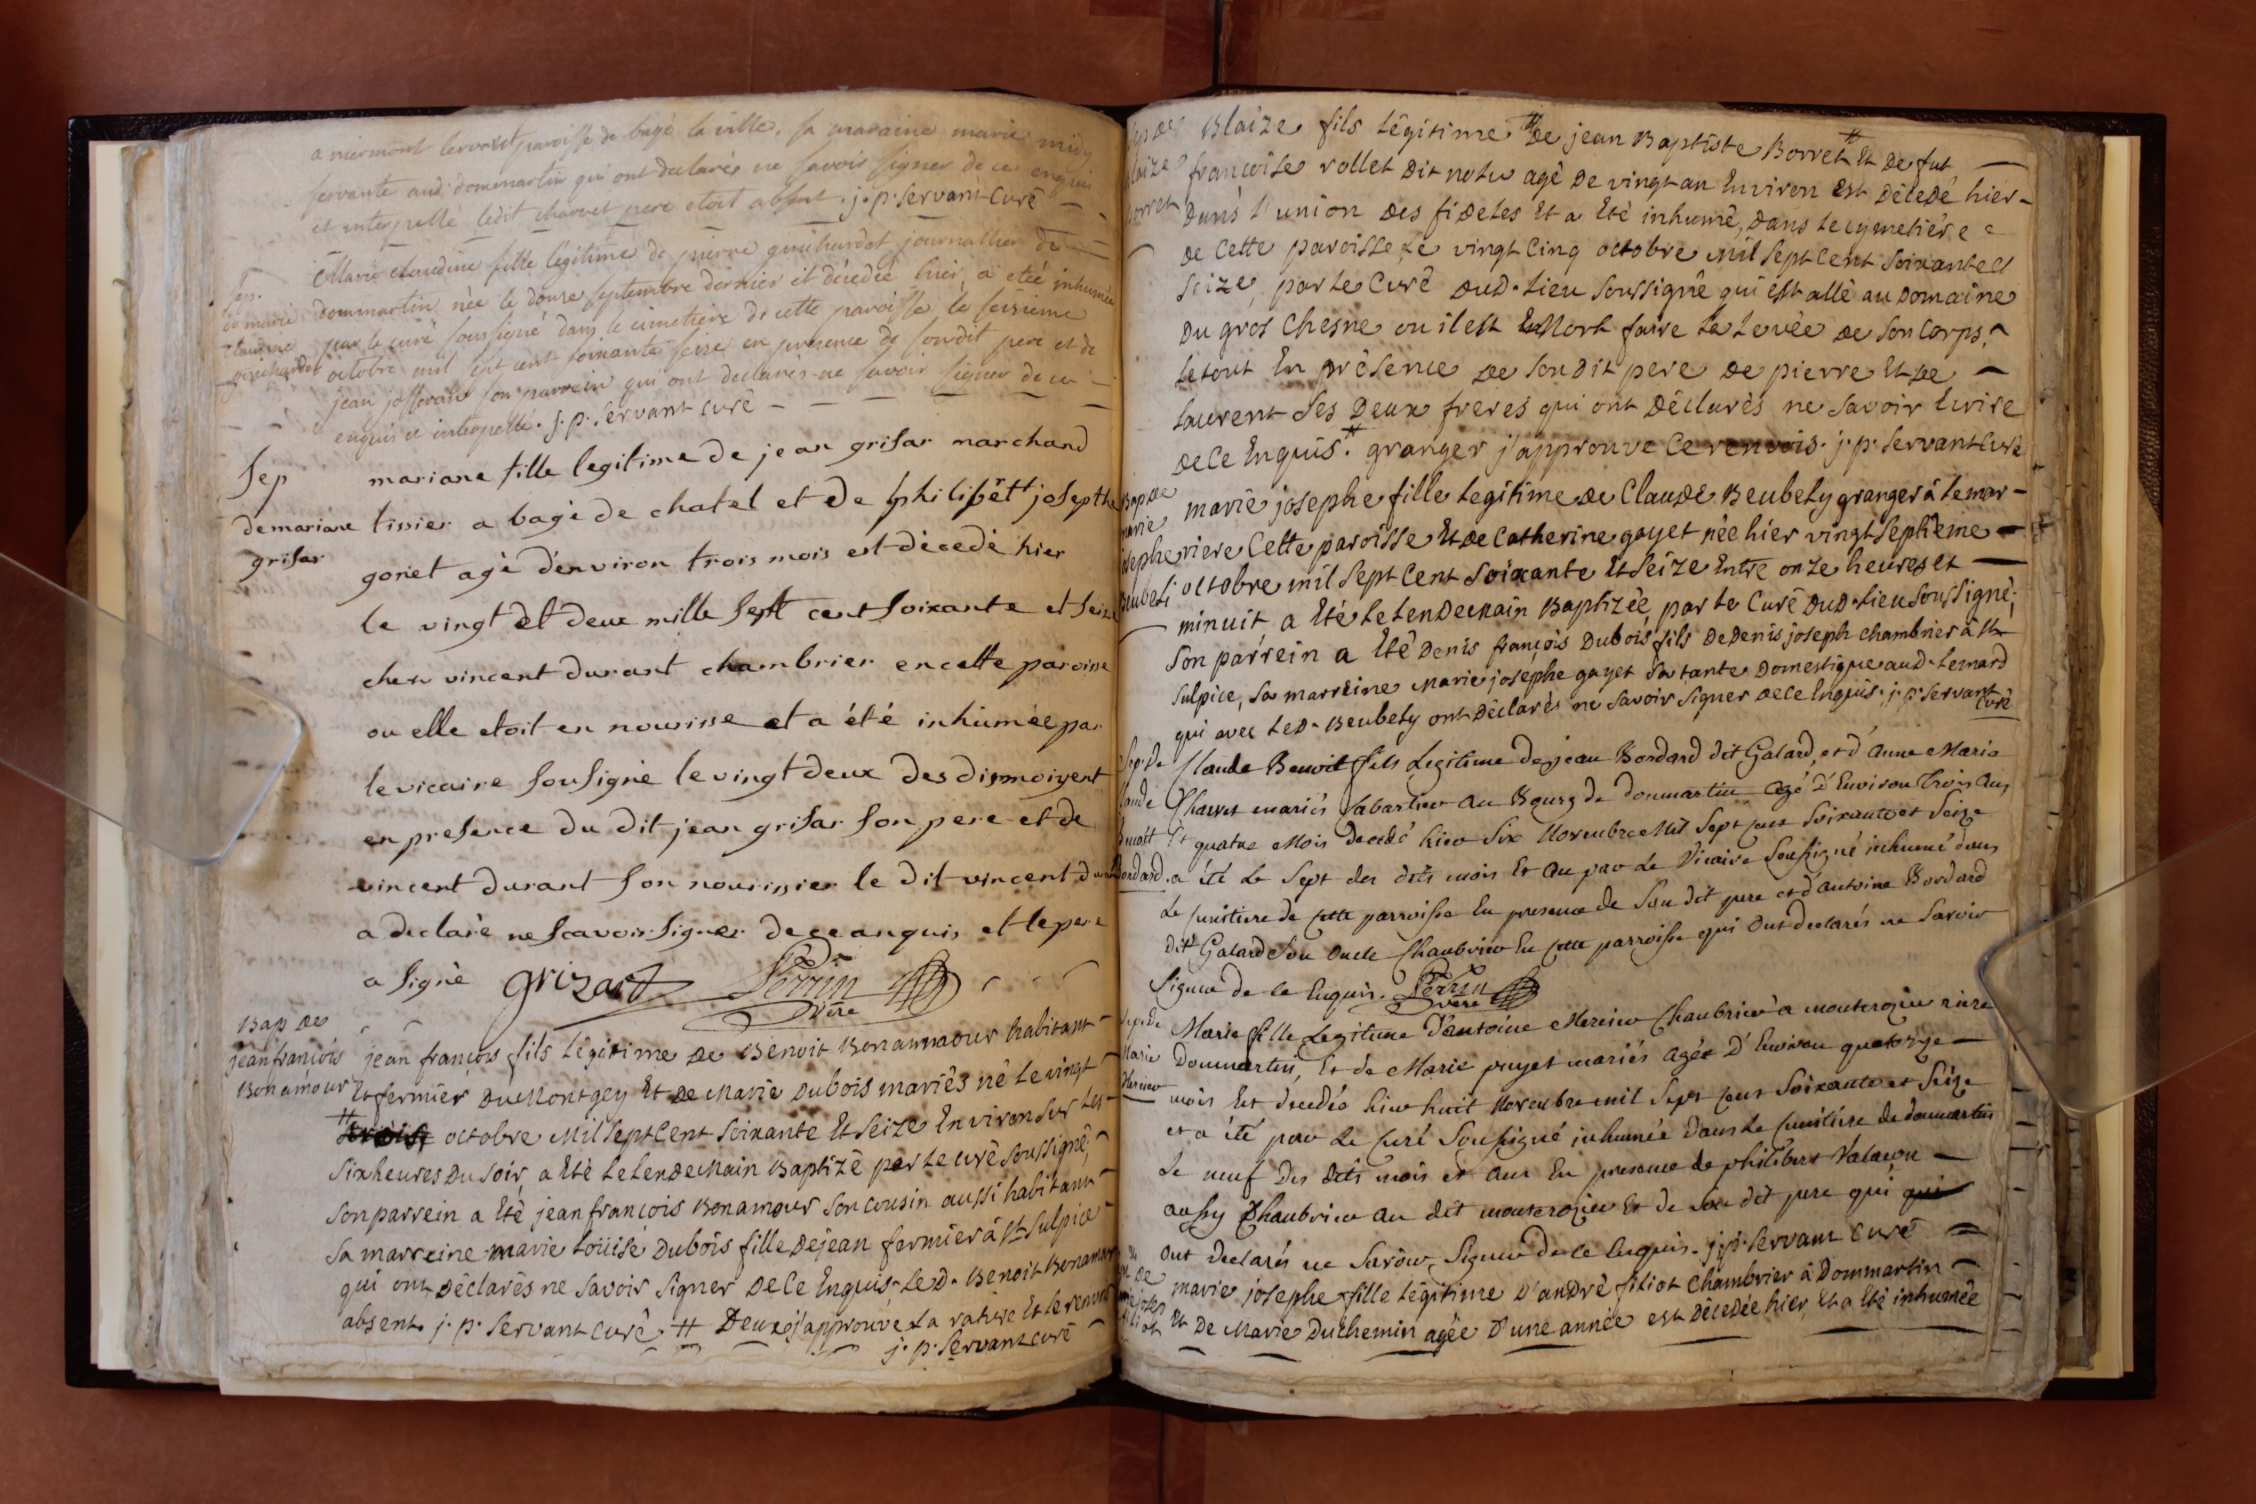 a niermont servant paroisse de bagé la ville, sa maraine marie midy
servante aud. dommartin qui ont declarés ne savoir signer de ce enquis
et interpellé ledit charvet pere etoit absent. j. p. servant Curé
Sep.
de marie
Claudine
guichardot
Marie claudine fille legitime de pierre guichardot journallier de
dommartin née le douze septembre dernier et décedée hier, a eté inhumée
par le curé soussigné dans le cimetiere de cette paroisse le seizieme
octobre mil sept cent soixante seize en presence de son dit pere et de
jean son parrein qui ont declarés ne savoir signer de ce
enquis et interpellé. j. p. servant curé
Sep
de mariane
grisar
mariane fille legitime de jean grisar marchand
tissier a bagé de chatel et de philibett josepthe
gonet agé d'environ trois mois est décedé hier
le vingt et deux mille sept cent soixante et seize
ches vincent durant chambrier en cette paroisse
ou elle etoit en nourisse et a été inhumée par
le vicaire sousigné le vingt deux des dis moiy ent
en presence du dit jean grisar son pere et de
vincent durant son nourissier le dit vincent durant
a declaré ne scavoir signer de ce anquis et le pere
a signé grizard Perrin vire
Bap de
jean françois
Bonamour
jean françois fils légitime de Benoit Bonammour habitant
Et fermier du Montgey Et de Marie Dubois mariés né le vingt
# octobre Mil sept Cent soixante Et seize Environ sur les
six heures du soir, a Eté le lendemain Baptizé par le curé soussigné,
son parrein a Eté jean françois Bonamour son cousin aussi habitant
sa marreine marie loüise Dubois fille de jean fermier à St sulpice
qui ont déclarés ne savoir signer de ce Enquis. le d. Benoit Bonamour
absent. j. p. servant curé. # Deux j'approuve la rature Et le renvoi
j. p. servant curé
Sep de
Blaize
Borret
Blaize fils légitime # de jean Baptiste Borret # Et de fut
françoise rollet dit notu agé de vingt an Environ Est décedé hier
dans l'union des fideles Et a Eté inhumé, dans le cymetière
de Cette paroisse, le vingt cinq octobre mil sept Cent soixante et
seize, par le Curé dud. lieu soussigné qui est allé au domaine
du gros chesne ou il est Mort faire la levée de son Corps,
le tout En présence de son dit pere de pierre Et de
laurent ses deux freres qui ont déclarés ne savoir Ecrire
de Ce Enquis. # granger j'approuve ce renvois. j. p. servant Curé
Bap. de
marie
josephe
Beubeli
marie josephe fille legitime de Claude Beubely granger à lemar-
viere Cette paroisse Et de Catherine gayet née hier vingt septieme
octobre mil sept Cent soixante Et seize Entre onze heures et
minuit a Eté le lendemain Baptizée, par le Curé dud. lieu soussigné;
son parrein a Eté denis françois Dubois fils de denis joseph chambrier à St
sulpice, sa marreine Marie josephe gayet sa tante domestique aud. lemard
qui avec led. Beubely ont déclarés ne savoir signer de ce Enquis. j. p. servant
Curé
Sep. de
Claude
Benoit
Bordard.
Claude Benoit fils Legitime de jean Bordard dit Galard, et d'anne Marie
Charvet mariés au Bourg de dommartin agé d'Environ trois ans
Et quatre Mois decedé hier six Novembre Mil Sept cent soixante et Seize
a été Le sept des dits mois Et an par Le Vicaire Soussigné inhumé dans
Le cimitiere de cette parroisse En presence de Son dit pere et d'antoine Bordard
dit Galard Son oncle Chambrier En cette parroisse qui ont declarés ne savoir
Signer de ce Enquis. Perrin vire
Sep de
Marie
Mercier
Marie fille Legitime d'antoine Mercier Chambrier a montcrozier riere
Dommartin, Et de Marie puget mariés agée D'Environ quatorze
mois Est decedée hier huit Novembre mil Sept cent soixante et Seize
et a été par Le Curé Sousigné inhumée Dans Le Cimitiere de dommartin
Le neuf Des dits mois et an En presence de philibert
aussy Chambrier au dit montcrozier Et de Son dit pere qui qui
ont declarés ne Savoir Signer de ce Enquis. j. p. servant Curé
marie josephe fille légitime d'andré filiot Chambrier à Dommartin
Et de Marie Duchemin agée d'une année est décedée hier, Et a Eté inhumée